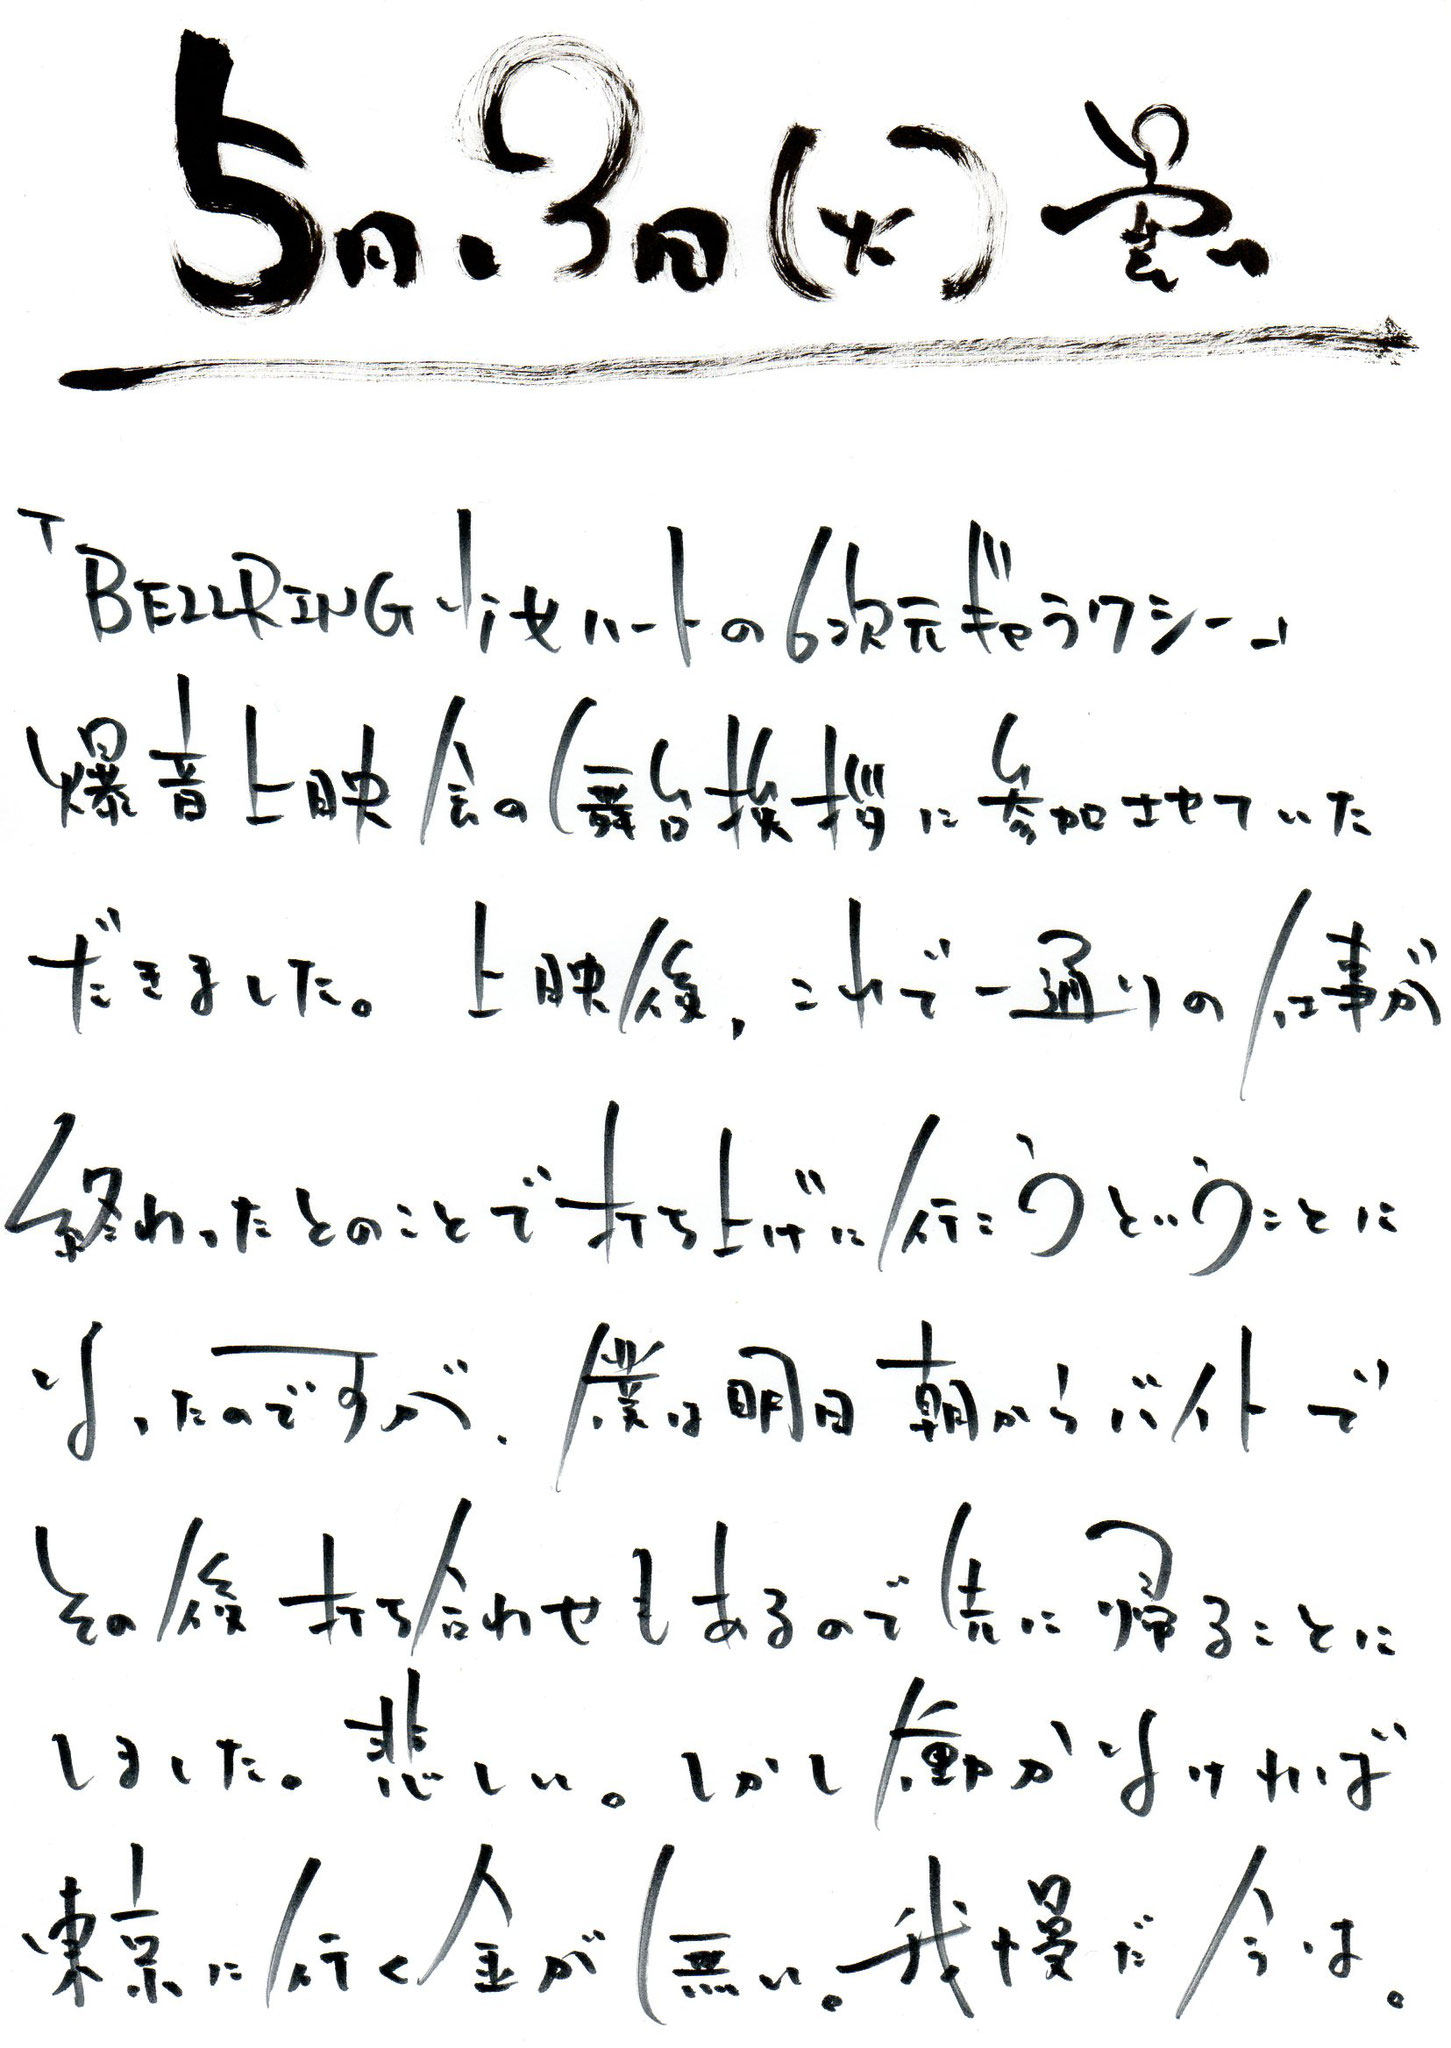 5月.3日(火)曇り
「BELLRING少女ハートの6次元ギャラクシー」
爆音上映会の舞台挨拶に参加させていた
だきました。 上映後,これで一通りの仕事が
終わったとのことで打ち上げに行こうということに
なったのですが、僕は明日朝からバイトで
その後打ち合わせもあるので先に帰ることに
しました。悲しい。しかし働かなければ
東京に行く金が無い。我慢だ今は。